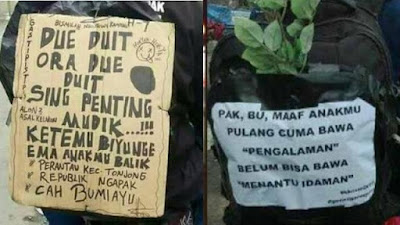 DUE DUIT
ORA DUE
DUIT
SING PENTING
MUDIK....!!!
KETEMU BIYUNGE
EMA ANAKMU BALIK
# PERANTAU KEC. TONJONG
# REPUBLIK NGAPAK
# CAH BUMIAYU
PAK, BU, MAAF ANAKMU
PULANG CUMA BAWA
"PENGALAMAN"
BELUM BISA BAWA
"MENANTU IDAMAN"